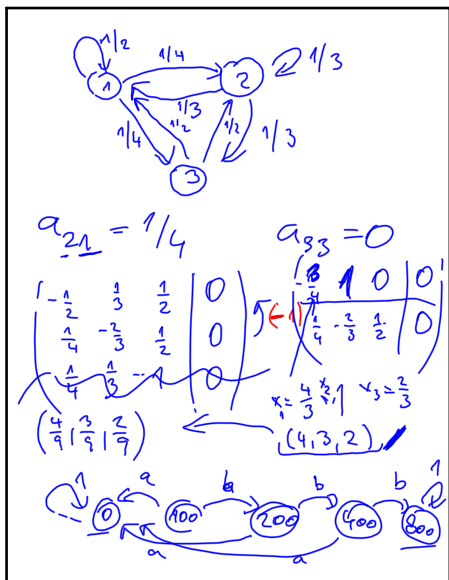 1/2
1/4
1 2 1/3
1/3
1/4 1/2 1/2 1/3
3
a₂₁ = 1/4 a₃₃ = 0
-1/2 1/3 1/2 | 0
1/4 -2/3 1/2 | 0 (-1)
1/4 1/3 -1 | 0
-3/4 1 0 | 0
1/4 -2/3 1/2 | 0
x₁ = 4/3 x₂ = 1 x₃ = 2/3
(4/9 | 3/9 | 2/9) (4, 3, 2)
1 a b b b 1
0 100 200 400 800
a a